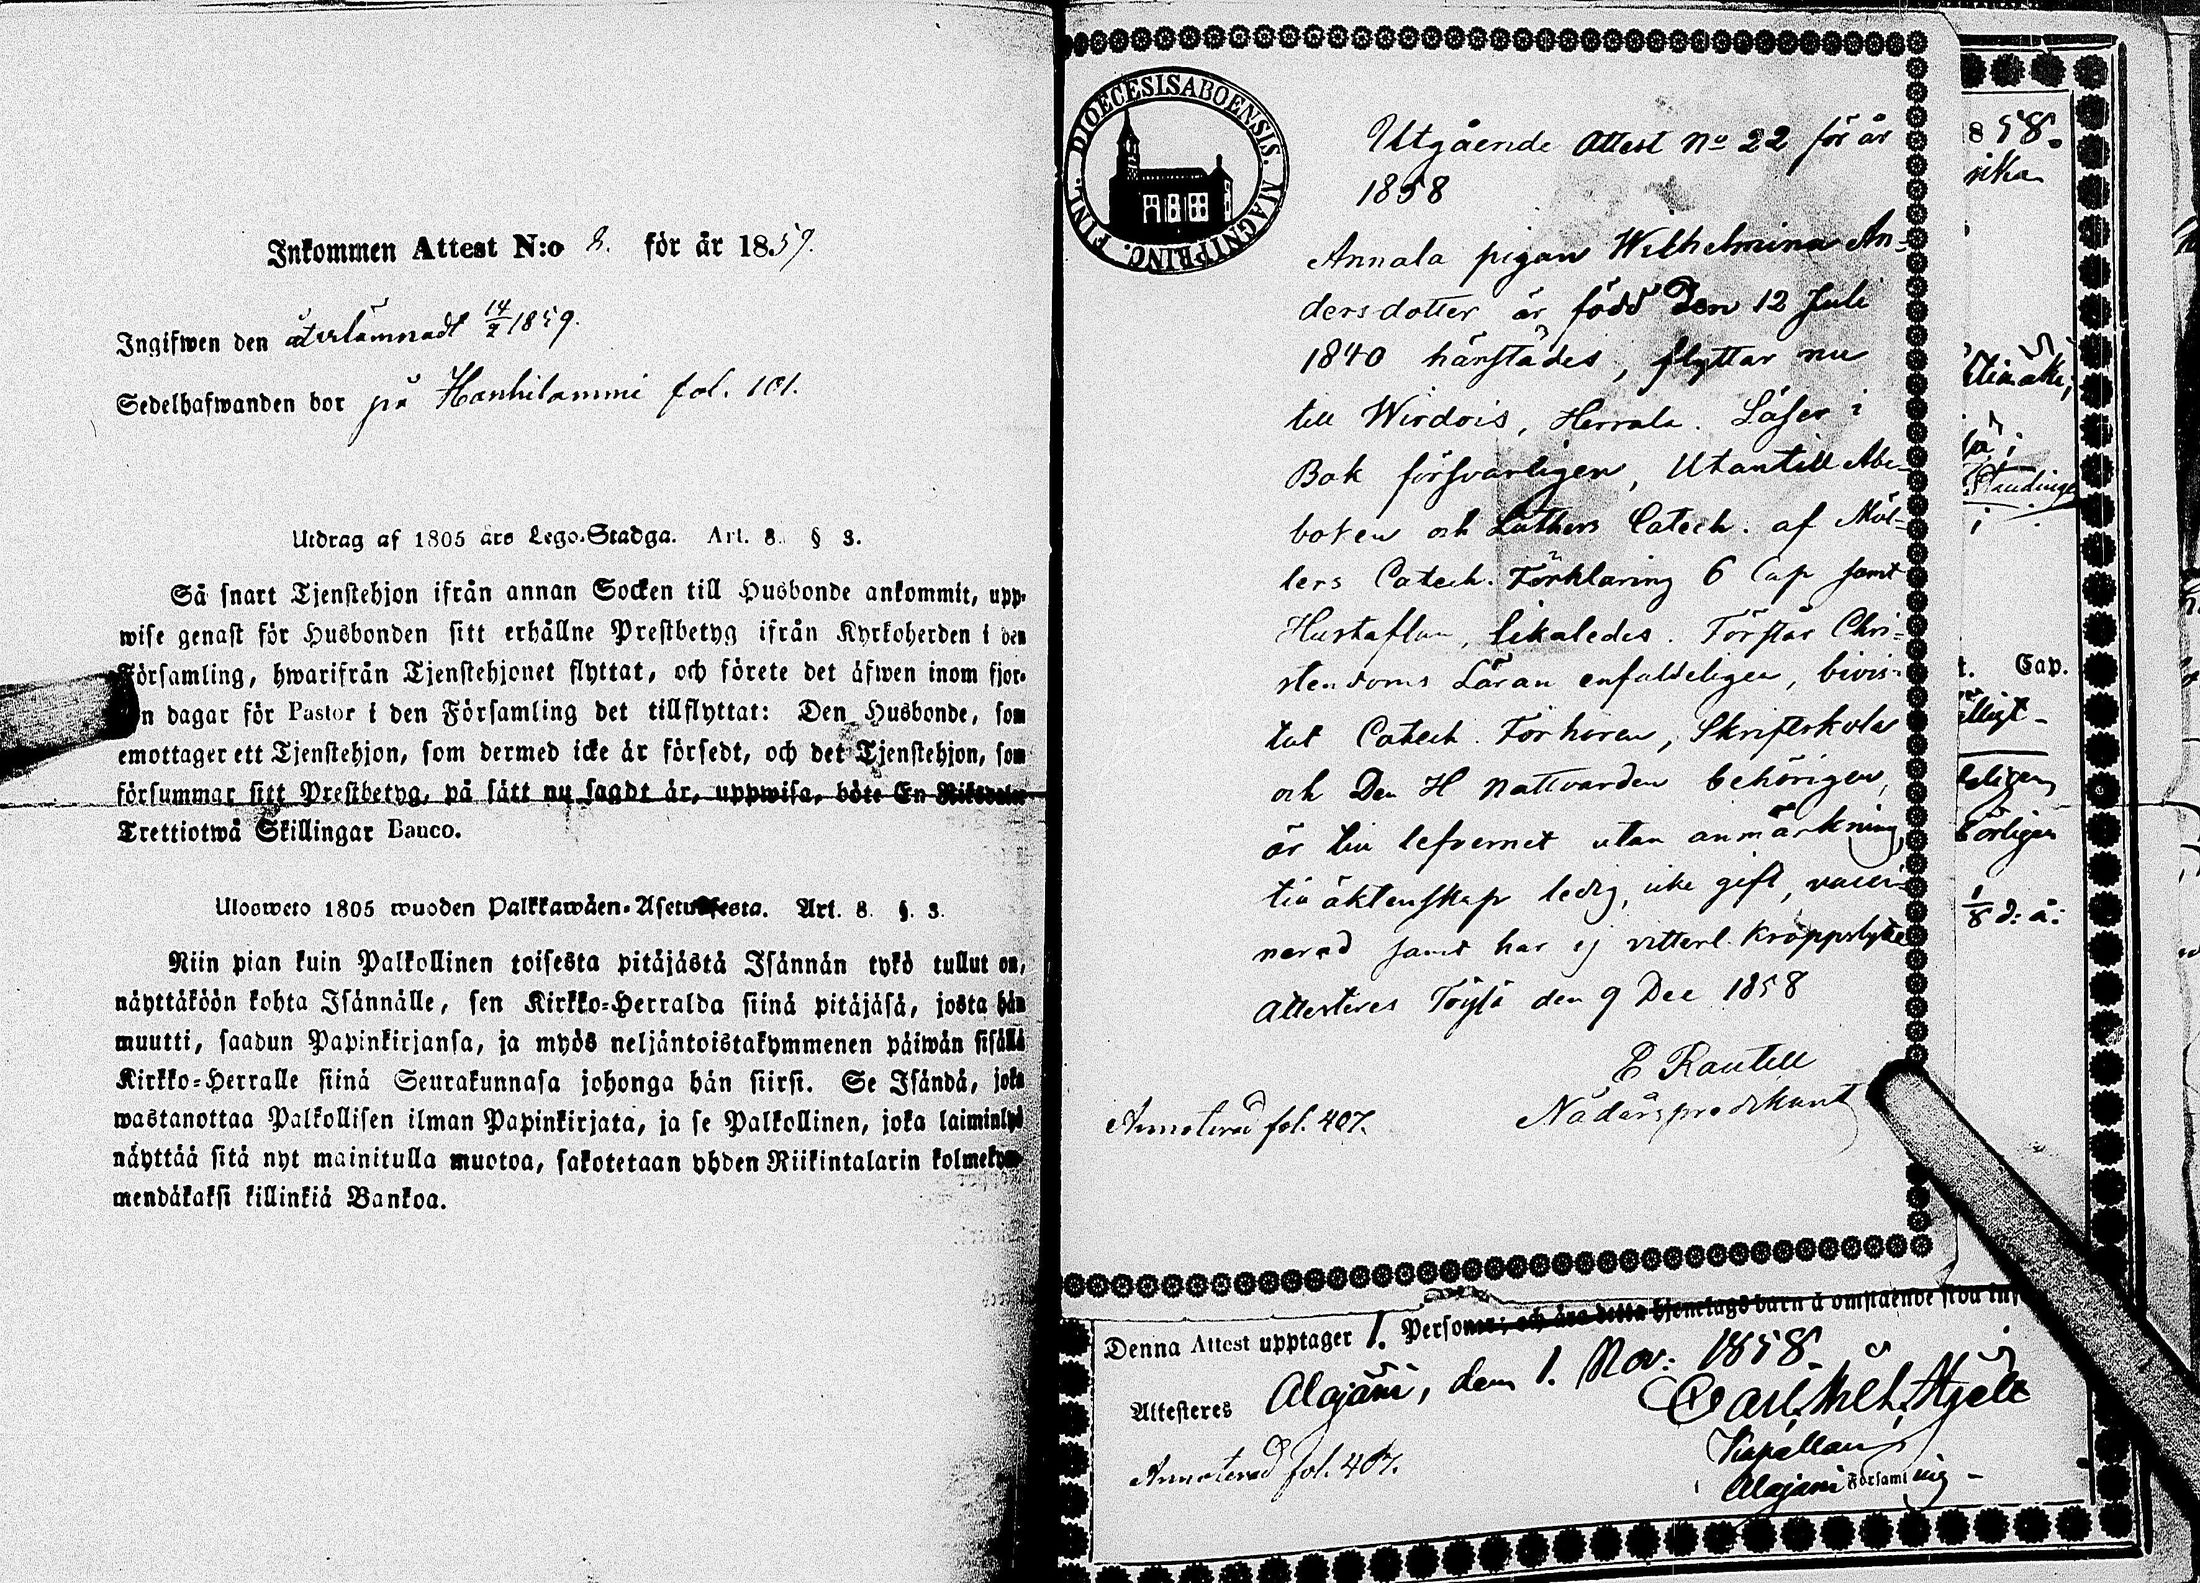 Inkommen Attest N:o 8. för år 1859.
Ingifwen den återlämnadt 14/2 1859.
Sedelhafwanden bor på Hanhilammi fol. 101.
Utdrag af 1805 års Lego-Stadga. Art. 8. § 3.
Så snart Tjenstehjon ifrån annan Socken till Husbonde ankommit, upp-
wise genast för Husbonden sitt erhållne Prestbetyg ifrån Kyrkoherden i den
Församling, hwarifrån Tjenstehjonet flyttat, och förete det äfwen inom fjor-
n dagar för Pastor i den Församling det tillflyttat: Den Husbonde, som
emottager ett Tjenstehjon, som dermed icke är försedt, och det Tjenstehjon, som
försummar sitt Prestbetyg, på sätt nu sagdt är, uppwisa, böte En Riksdaler
Trettiotwå Skillingar Banco.
Ulosweto 1805 wuoden Palkkawäen-Asetuksesta. Art. 8. §. 3.
Niin pian kuin Palkollinen toisesta pitäjästä Isännän tykö tullut on,
näyttäköön kohta Isännälle, sen Kirkko-Herralda siinä pitäjäsä, josta hän
muutti, saadun Papinkirjansa, ja myös neljäntoistakymmenen päiwän sisällä
Kirkko-Herralle siinä Seurakunnasa johonga hän siirsi. Se Isändä, joka
wastanottaa Palkollisen ilman Papinkirjata, ja se Palkollinen, joka laiminlyö
näyttää sitä nyt mainitulla muotoa, sakotetaan yhden Riikintalarin kolmekym-
mendäkaksi killinkiä Bankoa.
DIOECESIS ABOENSIS. MAGNI PRINC. FINL.
Utgående Attest No 22 för år
1858
Annala pigan Wilhelmina An-
dersdotter är född Den 12 Juli
1840 härstädes, flyttar nu
till Wirdois, Herrala. Läser i
Bok försvarligen, Utantill Abc-
boken och Luthers Catech. af Möl-
lers Catech. Förklaring 6 Cap samt
Hustaflan, likaledes. Förstår Chri-
stendoms Läran enfaldeligen, bivis-
tat Catech. Förhören, Skriftskola
och Den H Nattvarden behörigen,
är till lefvernet utan anmärkning,
till äktenskap ledig, icke gift, vacci-
nerad samt har ej vitterl. kroppslyte
Attesteres Töysä den 9 Dec 1858
E Rautell
Nådårspredikant
Annoterad fol. 407.
858.
Cap.
1/8 d: å:
Denna Attest upptager 1. Personer; och äro detta hjonelags barn å omstående sida
Attesteres Alajärvi, den 1. Nov: 1858
Kapellan
Annoterad fol. 407.
Alajärvi Församling